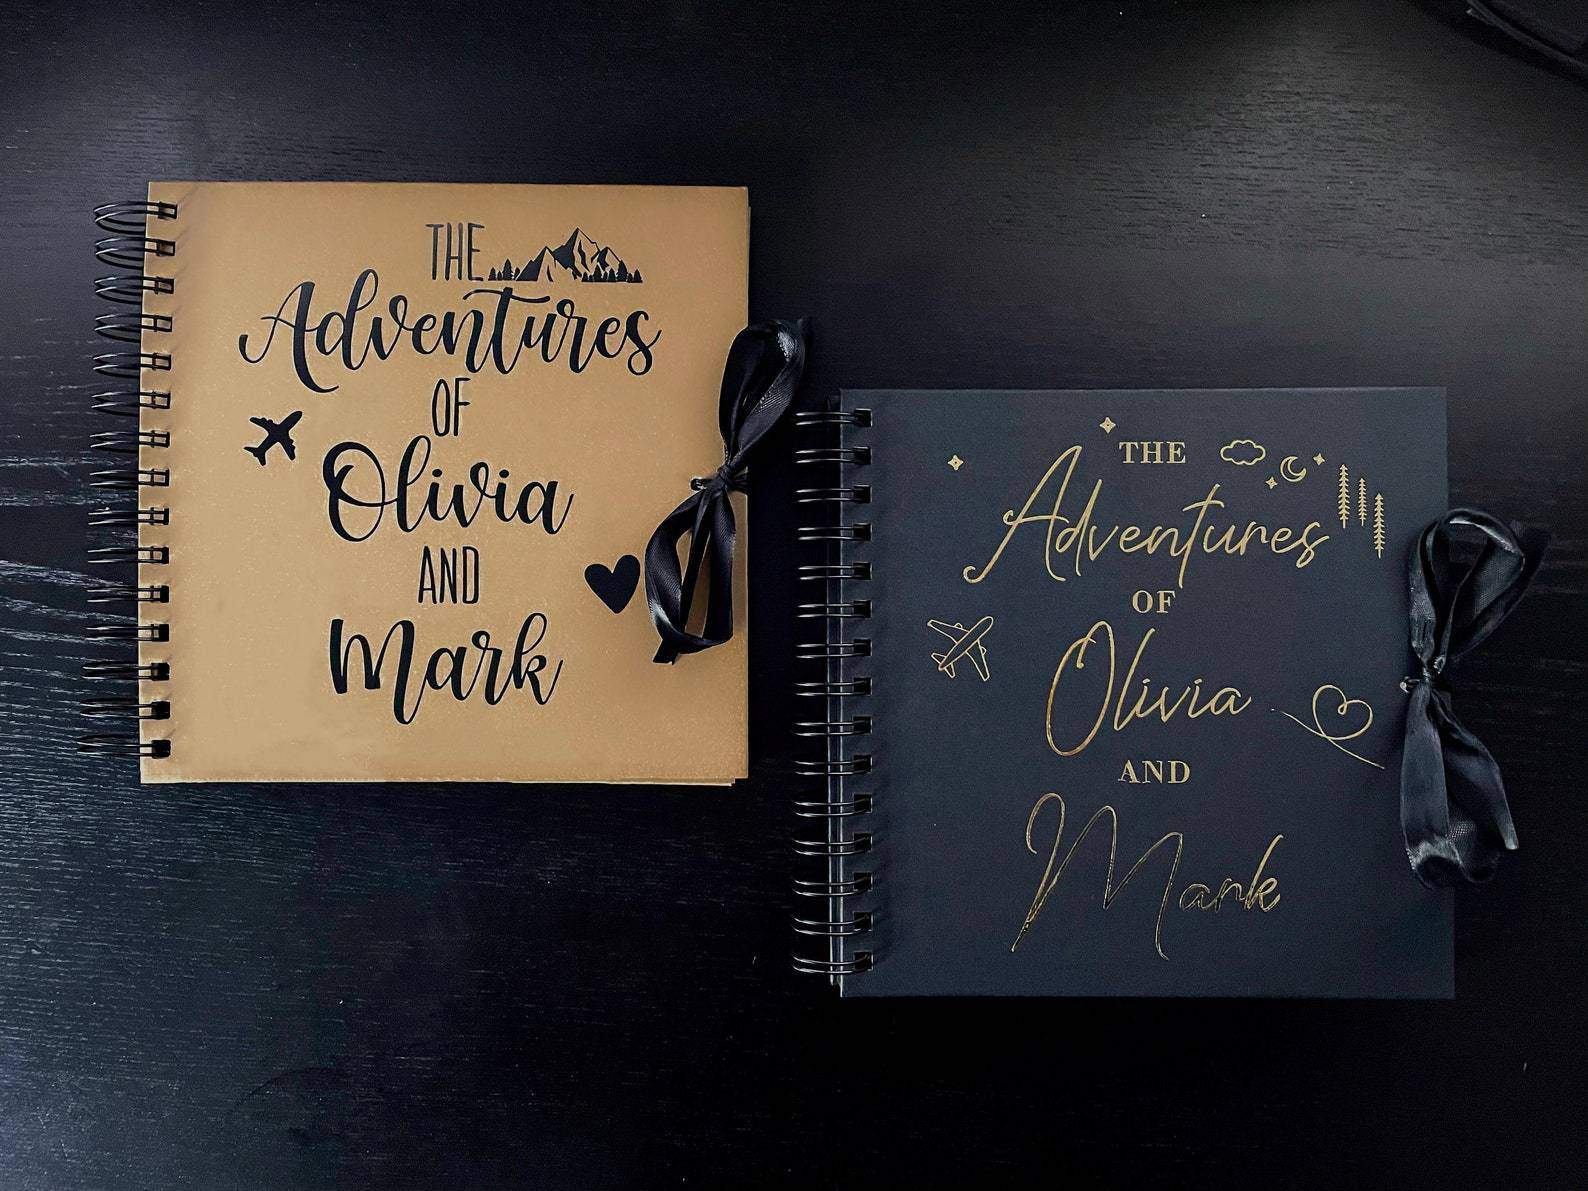 THE
Adventures
OF
Olivia
AND
Mark
THE
Adventures
OF
Olivia
AND
Mark